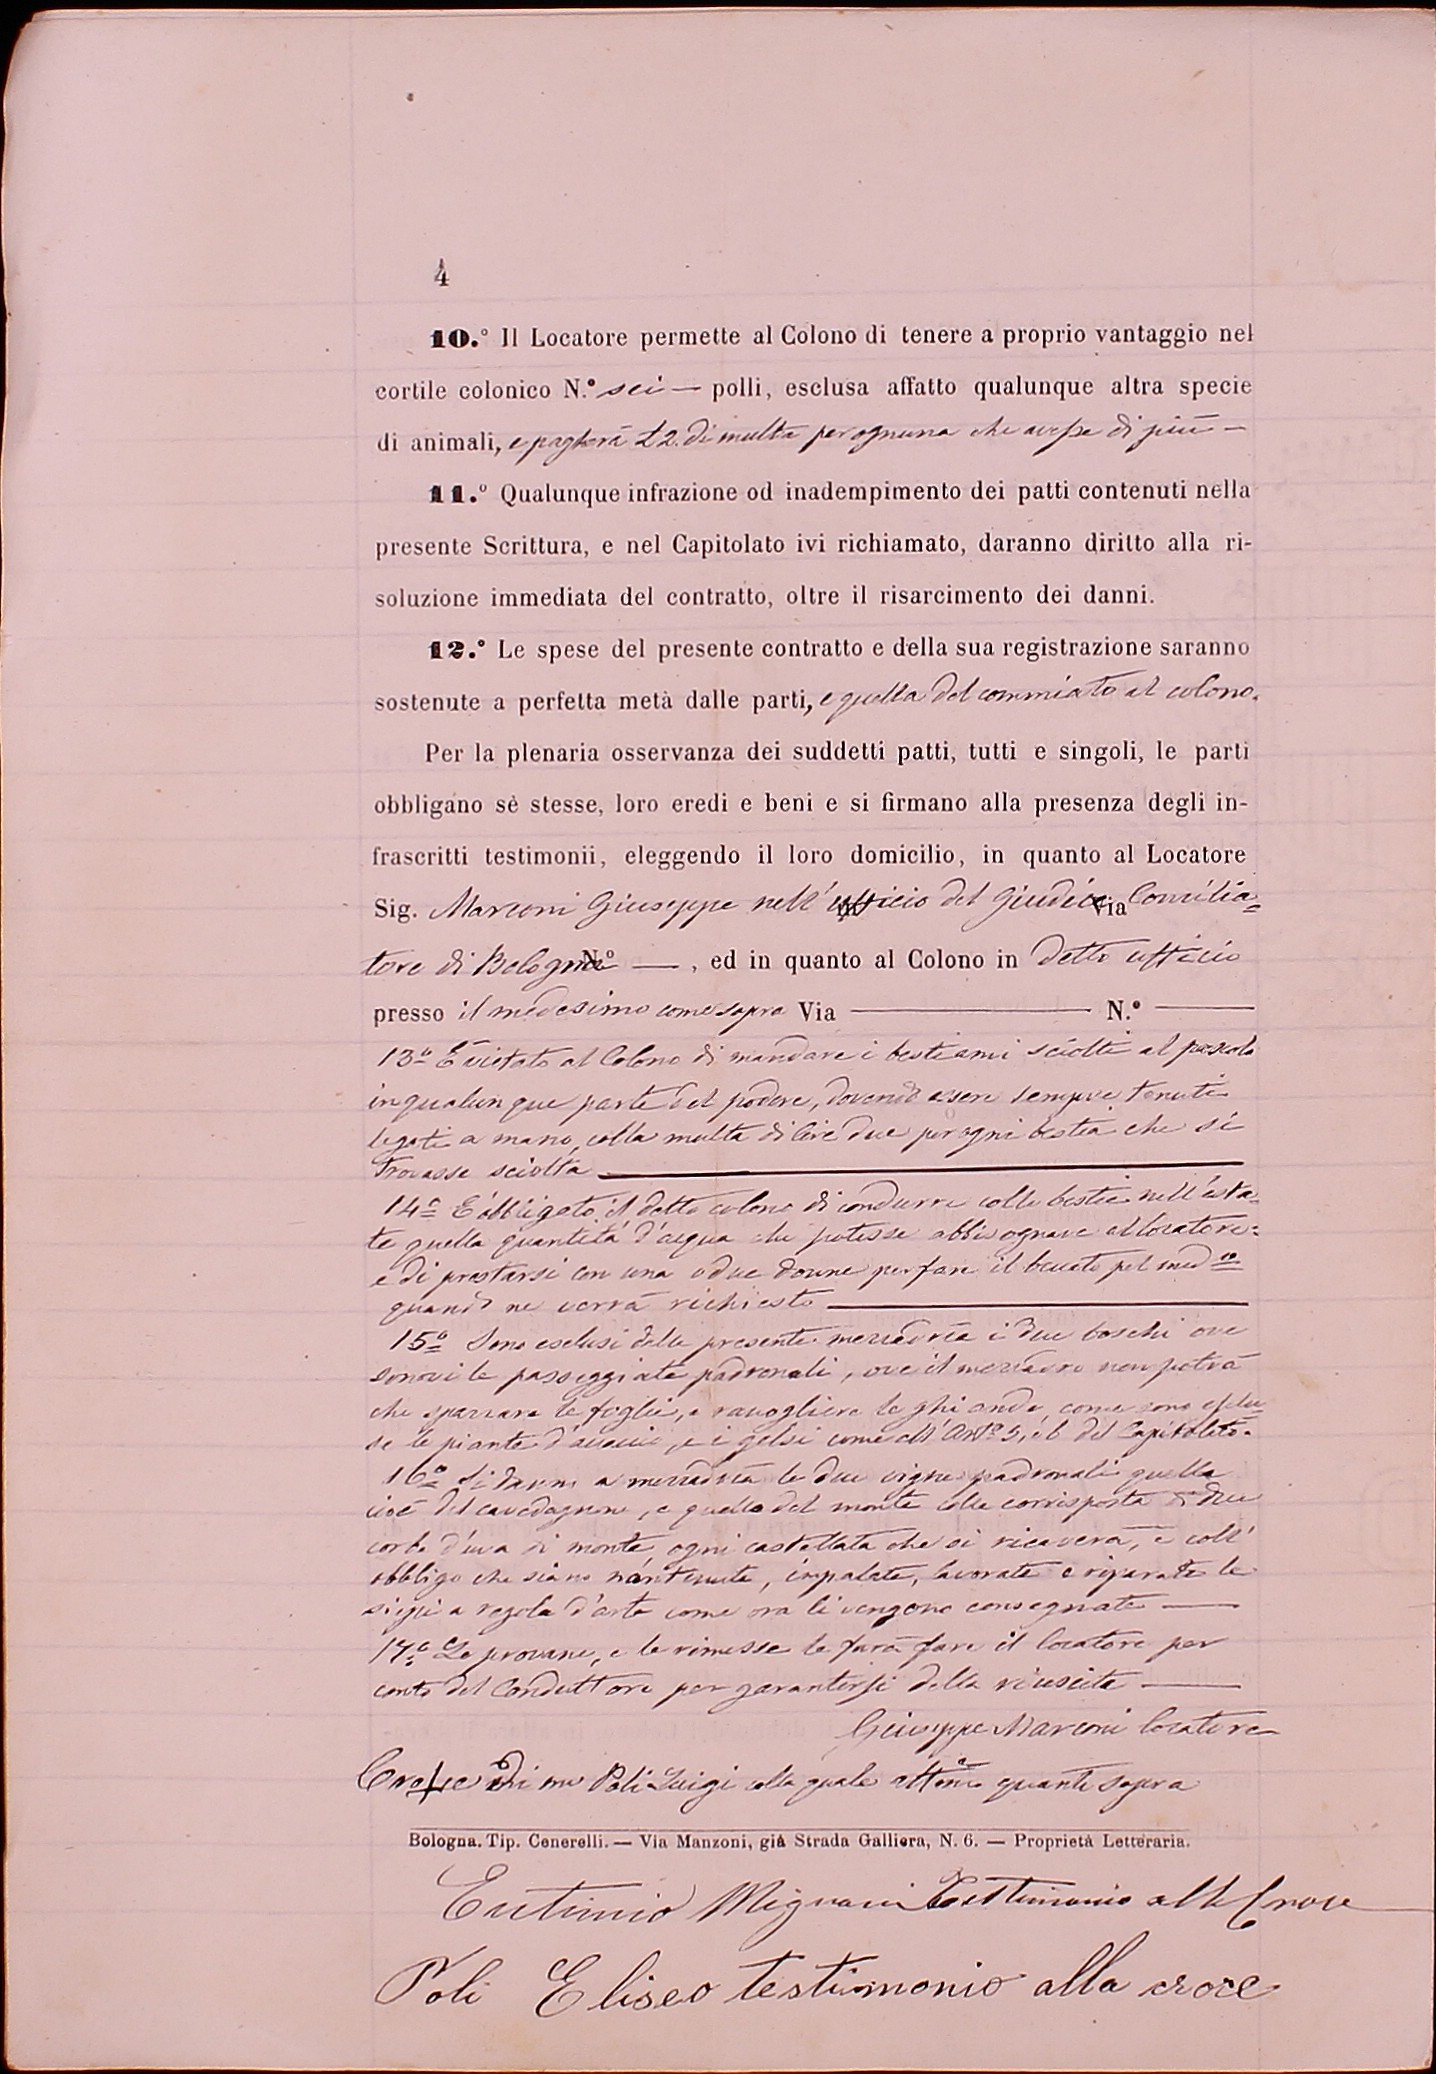 4
10.° Il Locatore permette al Colono di tenere a proprio vantaggio nel
cortile colonico N.° sei — polli, esclusa affatto qualunque altra specie
di animali, e pagherà £2. di multa per ognuna che avesse di più —
11.° Qualunque infrazione od inadempimento dei patti contenuti nella
presente Scrittura, e nel Capitolato ivi richiamato, daranno diritto alla ri-
soluzione immediata del contratto, oltre il risarcimento dei danni.
12.° Le spese del presente contratto e della sua registrazione saranno
sostenute a perfetta metà dalle parti, e quella del commiato al colono.
Per la plenaria osservanza dei suddetti patti, tutti e singoli, le parti
obbligano sè stesse, loro eredi e beni e si firmano alla presenza degli in-
frascritti testimonii, eleggendo il loro domicilio, in quanto al Locatore
Sig. Marconi Giuseppe nell'ufficio del Giudice Via Concilia=
tore di Bologna N.° — , ed in quanto al Colono in detto ufficio
presso il medesimo come sopra Via — N.° —
13° È vietato al Colono di mandare i bestiami sciolti al pascolo
in qualunque parte del podere, dovendo essere sempre tenuti
legati a mano, colla multa di lire due per ogni bestia che si
trovasse sciolta —
14° È obbligato il detto colono di condurre colle bestie nell'esta=
te quella quantità d'acqua che potesse abbisognare al locatore=
e di prestarsi con una o due donne per fare il bucato pel med.mo
quando ne verrà richiesto —
15° Sono esclusi dalla presente mezzadria i due boschi ove
sonovi le passeggiate padronali, ove il mezzadro non potrà
che spazzare le foglie, e raccogliere le ghiande, come sono esclu=
se le piante d'acacie, e i gelsi come all'Art° 5, e 6 del Capitolato.
16° Si danno a mezzadria le due vigne padronali quella
cioè del cavedagnone, e quella del monte colla corrisposta di due
corbe d'uva di monte, ogni castellata che si ricaverà, e coll'
obbligo che siano mantenute, impalate, lavorate e riparate le
siepi a regola d'arte come ora li vengono consegnate —
17° Le provane, e le rimesse le farà fare il locatore per
conto del Conduttore per garantirsi della riuscita —
Giuseppe Marconi locatore
Croce + di me Poli Luigi colla quale quanto sopra
Bologna. Tip. Cenerelli. — Via Manzoni, già Strada Galliera, N. 6. — Proprietà Letteraria.
Eutimio Mignani Testimonio alla Croce
Poli Eliseo testimonio alla croce